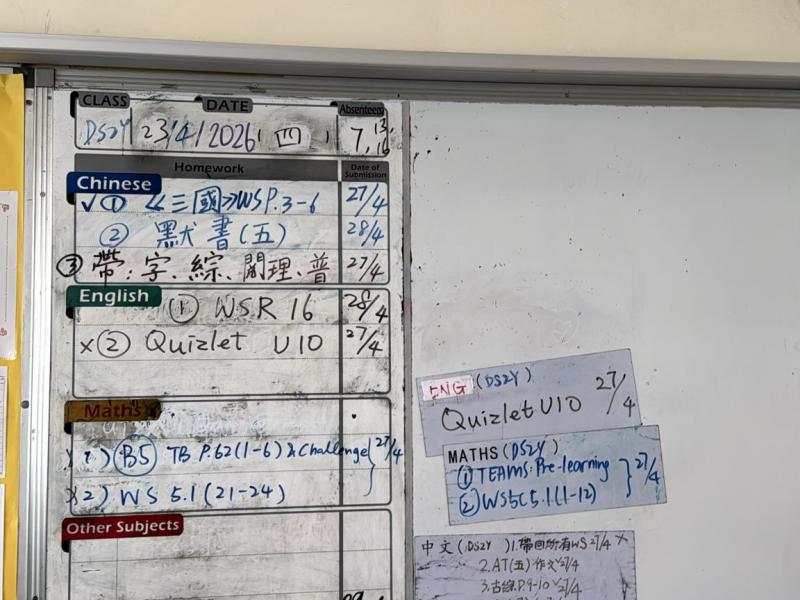 CLASS DATE Absentees
DS2Y 23/4/2026(四) 7, 13, 16
Homework Date of Submission
Chinese
✓① 《三國》WS P.3-6 27/4
② 默書(五) 28/4
③ 帶:字、綜、閱理、普 27/4
English
① WSR 16 28/4
×② Quizlet U10 27/4
Maths
1) B5 TB P.62(1-6) & Challenge } 27/4
2) WS 5.1(21-24)
Other Subjects
ENG (DS2Y) 27/4
Quizlet U10
MATHS (DS2Y)
① TEAMS: Pre-learning } 27/4
② WS5C5.1(1-12)
中文(DS2Y) 1.帶回所有WS 27/4 ×
2.AT(五)作文 27/4
3.古綜.P.9-10 27/4